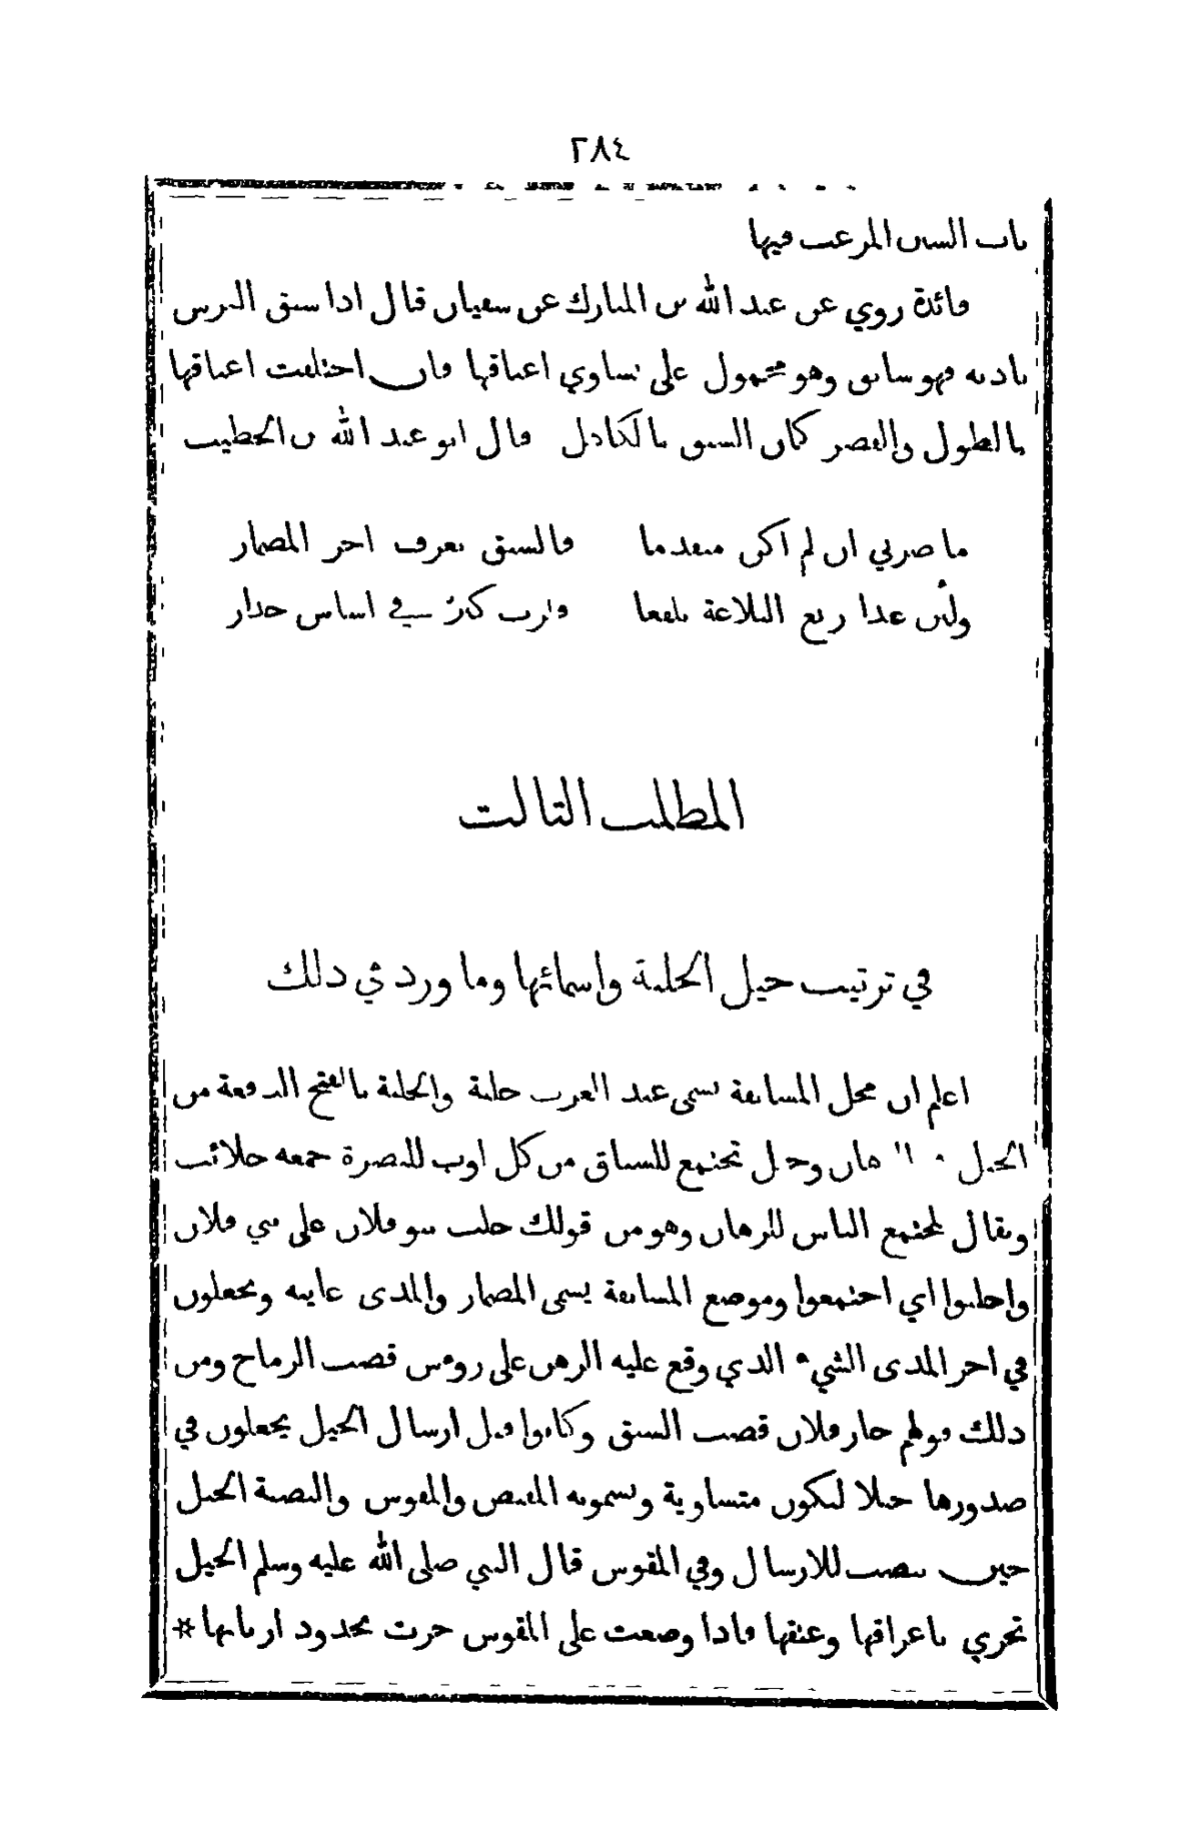 ٢٨٤
باب السنن المرغب فيها
فائدة روي عن عبد الله بن المبارك عن سفيان قال اذا سبق الفرس
باذنه فهو سابق وهو محمول على تساوي اعناقها فان اختلفت اعناقها
بالطول والقصر كان السبق بالكاهل قال ابو عبد الله بن الخطيب
ما ضرني ان لم اكن متقدما فالسبق يعرف اخر المضمار
ولئن غدا ربع البلاغة بلقعا فلرب كنز في اساس جدار
المطلب الثالث
في ترتيب خيل الحلبة واسمائها وما ورد في ذلك
اعلم ان محل المسابقة يسمى عند العرب حلبة والحلبة بالفتح الدفعة من
الخيل في الرهان وخيل تجتمع للسباق من كل اوب للنصرة جمعه حلائب
ويقال لمجتمع الناس للرهان وهو من قولك حلب بنو فلان على بني فلان
واحلبوا اي اجتمعوا وموضع المسابقة يسمى المضمار والمدى غايته ويجعلون
في اخر المدى الشيء الذي وقع عليه الرهن على رومس قصب الرماح ومن
ذلك قولهم حاز فلان قصب السبق وكانوا قبل ارسال الخيل يجعلون في
صدورها حبلا لتكون متساوية ويسمونه المقبص والمقوس والنصبة الخيل
حين تنصب للارسال وفي المقوس قال النبي صلى الله عليه وسلم الخيل
تجري باعراقها وعتقها فاذا وضعت على المقوس جرت بجدود اربابها *